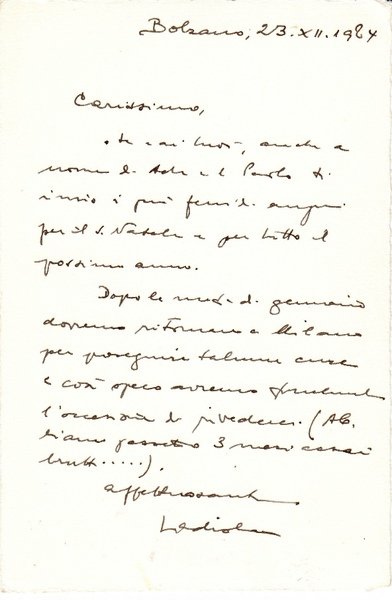 Bolzano, 23.XII.1984
Carissimo,
a te e ai tuoi, anche a
nome di Ada e di Paolo ti
invio i più fervidi auguri
per il S. Natale e per tutto il
prossimo anno.
Dopo la metà di gennaio
dovremo ritornare a Milano
per proseguire talune cure
e così spero avremo finalmente
l'occasione di rivederci. (Ab.
biamo passato 3 mesi assai
brutti.....).
affettuosamente